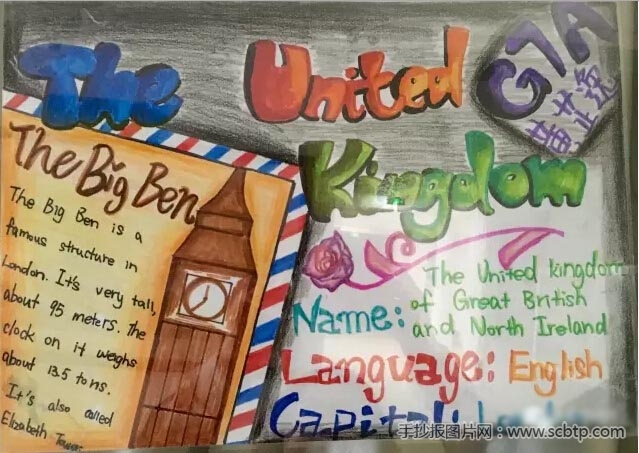 The United
G7A
Kingdom
The Big Ben
The Big Ben is a
famous structure in
London. It's very tall,
about 95 meters. The
clock on it weighs
about 13.5 tons.
It's also called
Elizabeth Tower
Name: The United kingdom
of Great British
and North Ireland
Language: English
Capital:
手抄报图片网:www.scbtp.com